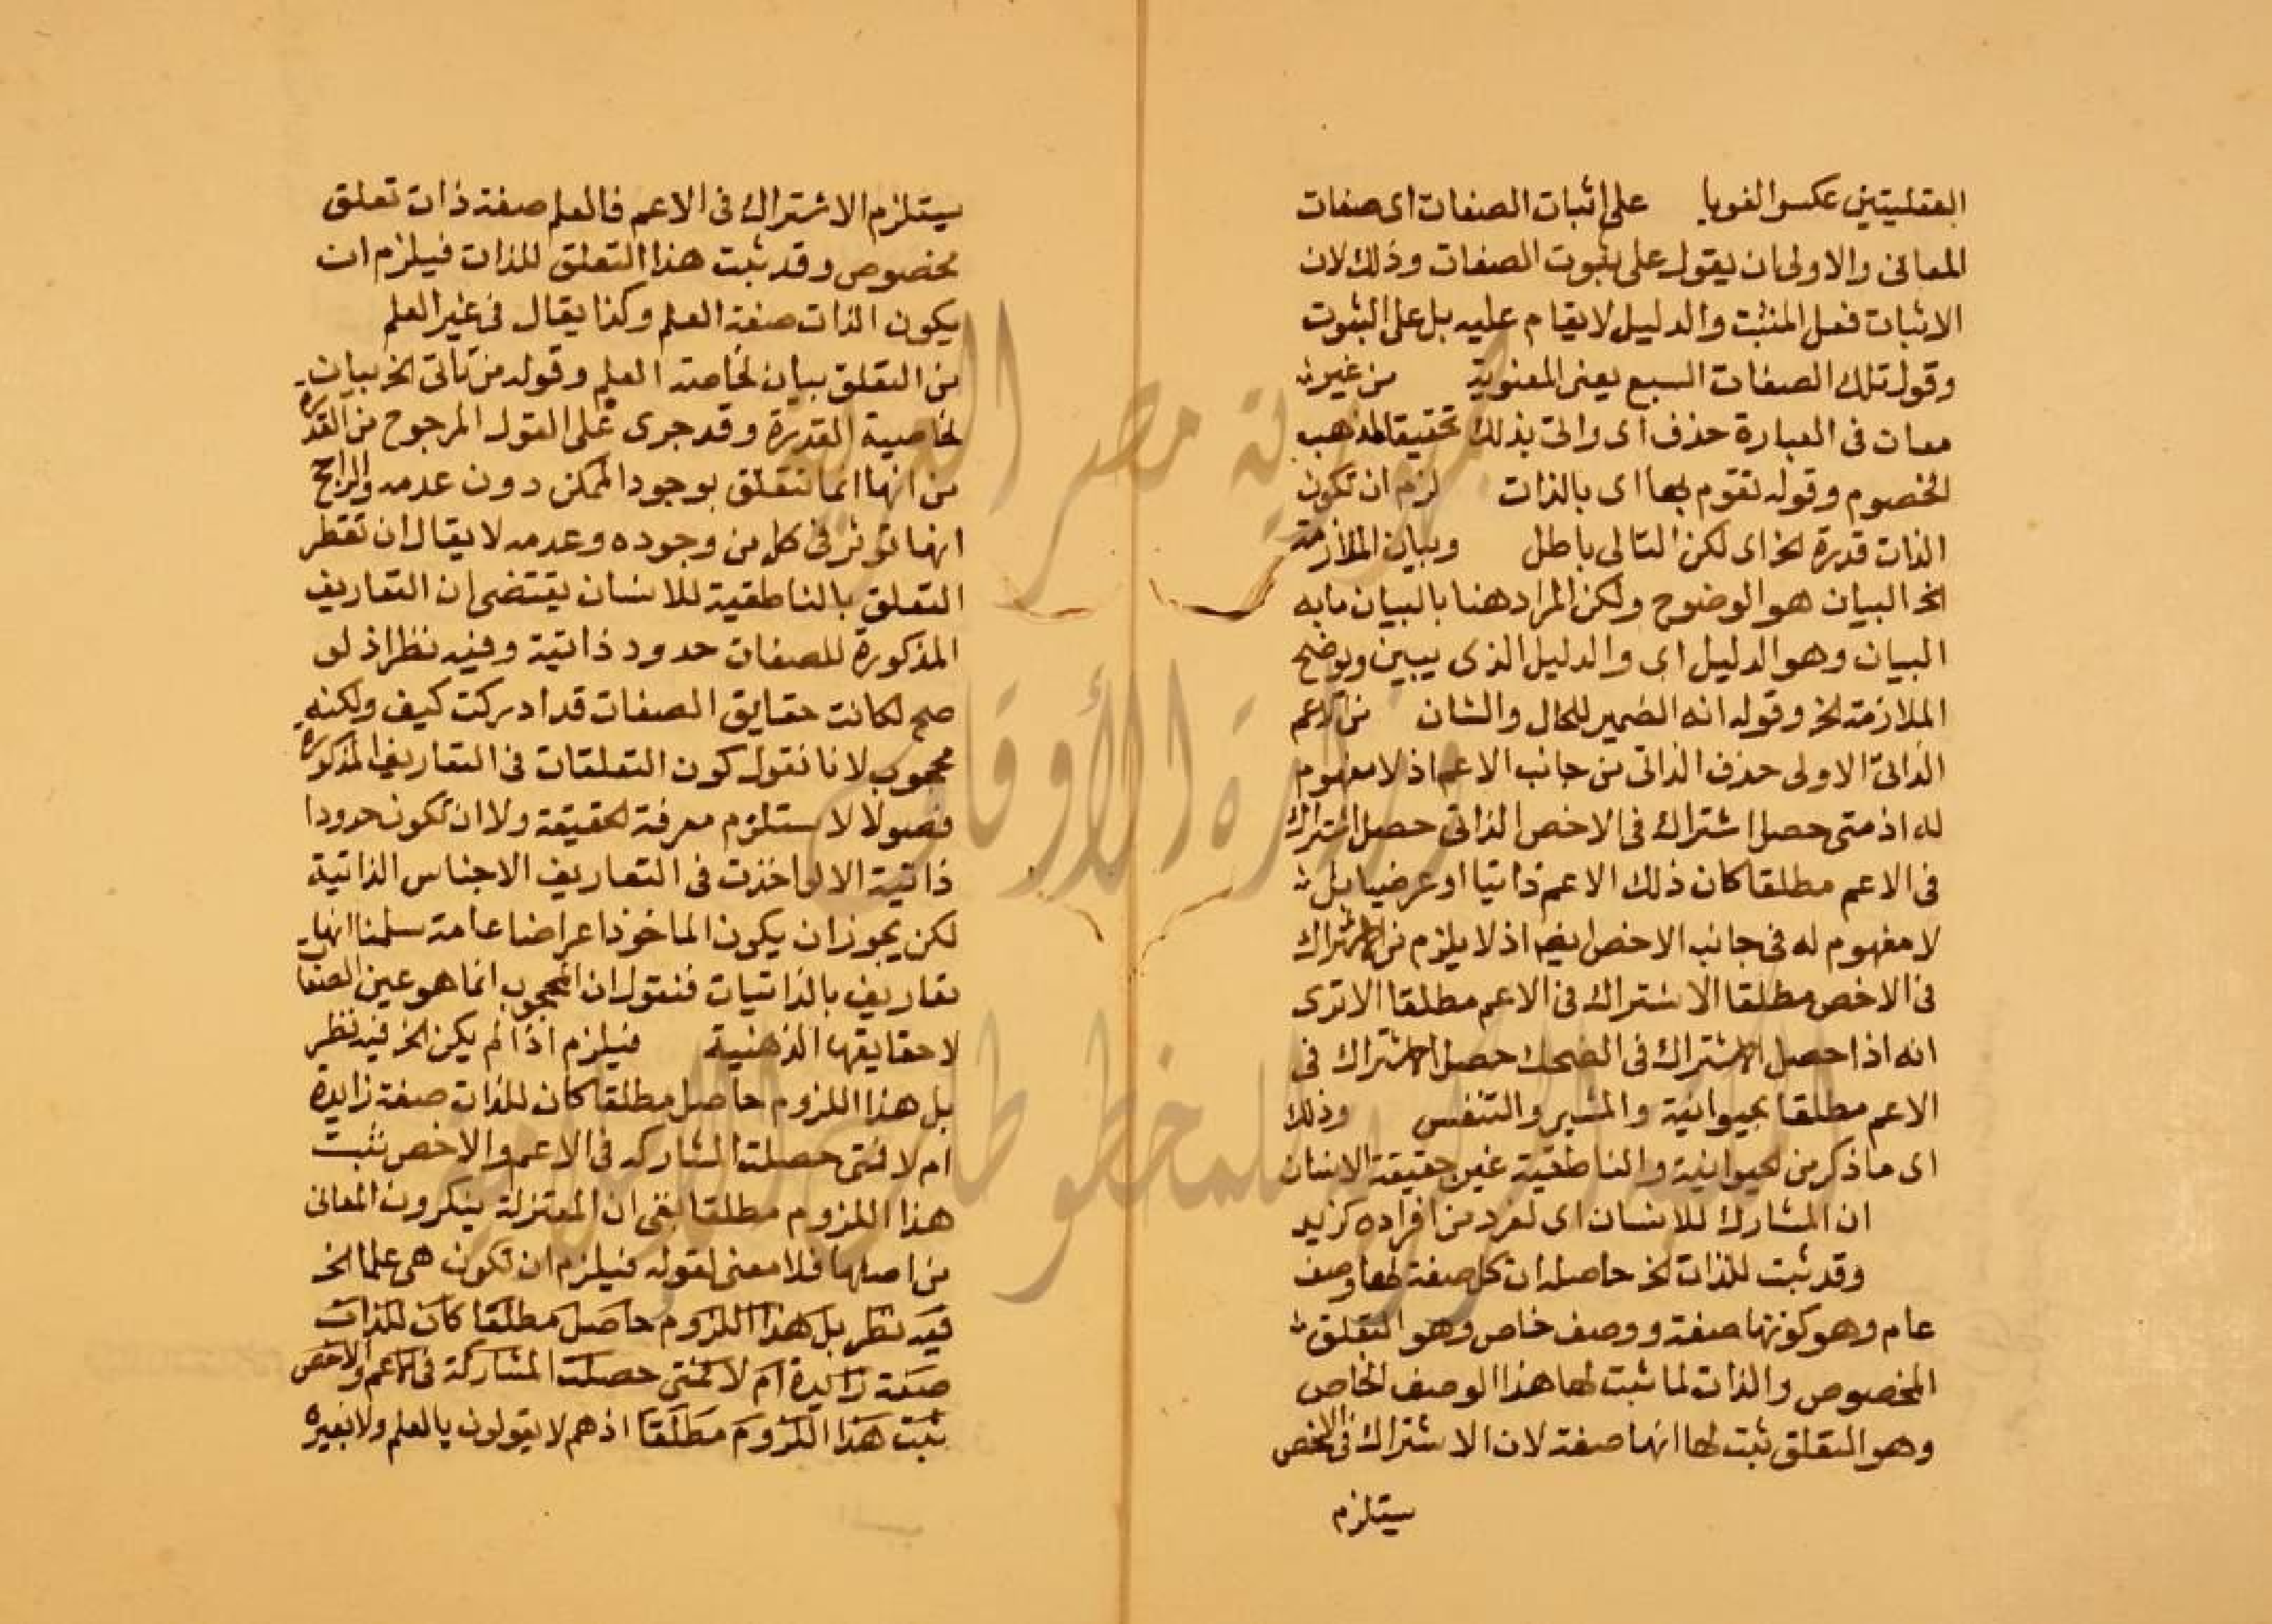 العقليتين عكسوا لغويا على إثبات الصفات اى صفات
المعانى والاولى ان يقول على ثبوت الصفات وذلك لان
الاثبات فعل المثبت والدليل لا يقام عليه بل على الثبوت
وقوله تلك الصفات السبع يعنى المعنوية من غير
معان فى العبارة حذف اى واتى بذلك تحقيقا لمذهب
الخصوم وقوله تقوم بها اى بالذات لزم ان تكون
الذات قدرة الخ اى لكن التالى باطل وبيان الملازمة
الخ البيان هو الوضوح ولكن المراد هنا بالبيان ما به
البيان وهو الدليل اى والدليل الذى يبين ويوضح
الملازمة الخ وقوله انه الضمير للحال والشان من الاعم
الذاتى الاولى حذف الذاتى من جانب الاعم اذ لا مفهوم
له اذ متى حصل اشتراك فى الاخص الذاتى حصل اشتراك
فى الاعم مطلقا كان ذلك الاعم ذاتيا او عرضيا بل
لا مفهوم له فى جانب الاخص ايضا اذ لا يلزم من الاشتراك
فى الاخص مطلقا الاشتراك فى الاعم مطلقا الا ترى
انه اذا حصل الاشتراك فى الضحك حصل الاشتراك فى
الاعم مطلقا كحيوانية والمشى والتنفس وذلك
اى ما ذكر من الحيوانية والناطقية عين حقيقة الانسان
ان المشارك للانسان اى لفرد من افراده كزيد
وقد ثبت للذات الخ حاصله ان كل صفة لها وصف
عام وهو كونها صفة ووصف خاص وهو التعلق
المخصوص والذات لما ثبت لها هذا الوصف الخاص
وهو التعلق ثبت لها انها صفة لان الاشتراك فى الاخص
يستلزم
يستلزم الاشتراك فى الاعم فالعلم صفة ذات تعلق
مخصوص وقد ثبت هذا التعلق للذات فيلزم ان
يكون الذات صفة العلم وكذا يقال فى غير العلم
من التعلق بيان لخاصة العلم وقوله من تأتى الخ بيان
لخاصية القدرة وقد جرى على القول المرجوح من القدرة
من انها انما تتعلق بوجود الممكن دون عدمه والراجح
انها تؤثر فى كل من وجوده وعدمه لا يقال ان تنظر
التعلق بالناطقية للانسان يقتضى ان التعاريف
المذكورة للصفات حدود ذاتية وفيه نظر اذ لو
صح لكانت حقايق الصفات قد ادركت كيف ولكنه
محجوب لانا نقول كون التعلقات فى التعاريف المذكورة
فصولا لا يستلزم معرفة الحقيقة ولا ان تكون حدودا
ذاتية الا لو اخذت فى التعاريف الاجناس الذاتية
لكن يجوز ان يكون الماخوذ اعراضا عامة سلمنا انها
تعاريف بالذاتيات فنقول ان المحجوب انما هو عين الصفات
لا حقايقها الذهنية فيلزم اذا لم يكن الخ فيه نظر
بل هذا اللزوم حاصل مطلقا كان للذات صفة زايدة
ام لا فمتى حصلت المشاركة فى الاعم والاخص ثبت
هذا اللزوم مطلقا بقى ان المعتزلة ينكرون المعانى
من اصلها فلا معنى لقوله فيلزم ان تكون هى علما الخ
فيه نظر بل هذا اللزوم حاصل مطلقا كان للذات
صفة زايدة ام لا فمتى حصلت المشاركة فى الاعم والاخص
ثبت هذا اللزوم مطلقا اذ هم لا يقولون بالعلم ولا بغيره